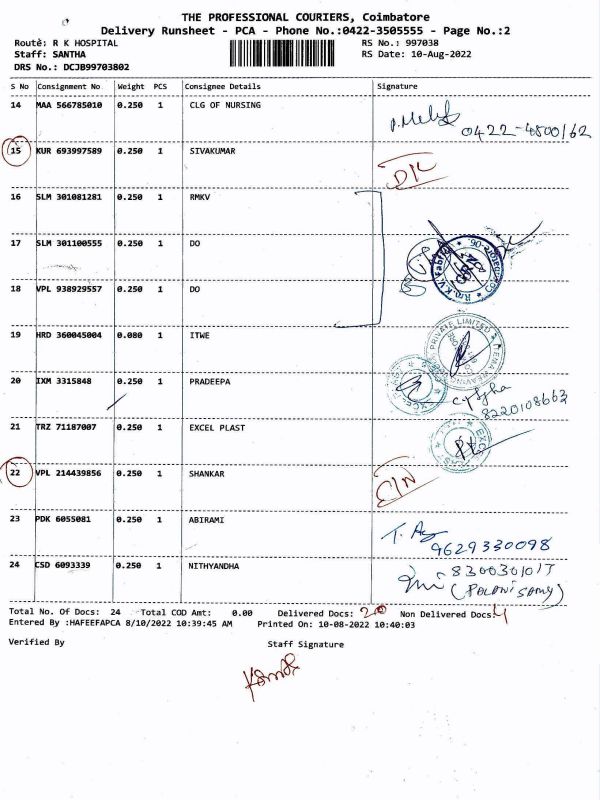 THE PROFESSIONAL COURIERS, Coimbatore
Delivery Runsheet - PCA - Phone No.:0422-3505555 - Page No.:2
Route: R K HOSPITAL
RS No.: 997038
Staff: SANTHA
RS Date: 10-Aug-2022
DRS No.: DCJB99703802
S No Consignment No Weight PCS Consignee Details Signature
14 MAA 566785010 0.250 1 CLG OF NURSING
0422-4800162
15 KUR 693997589 0.250 1 SIVAKUMAR
D/L
16 SLM 301081281 0.250 1 RMKV
17 SLM 301100555 0.250 1 DO
18 VPL 938929557 0.250 1 DO
19 HRD 360045004 0.080 1 ITWE
PRIVATE LIMITED
20 IXM 3315848 0.250 1 PRADEEPA
8220108663
21 TRZ 71187007 0.250 1 EXCEL PLAST
22 VPL 214439856 0.250 1 SHANKAR
23 PDK 6055081 0.250 1 ABIRAMI
9629330098
24 CSD 6093339 0.250 1 NITHYANDHA
(PALANISAMY)
Total No. Of Docs: 24 Total COD Amt: 0.00 Delivered Docs: 20 Non Delivered Docs: 4
Entered By :HAFEEFAPCA 8/10/2022 10:39:45 AM Printed On: 10-08-2022 10:40:03
Verified By Staff Signature